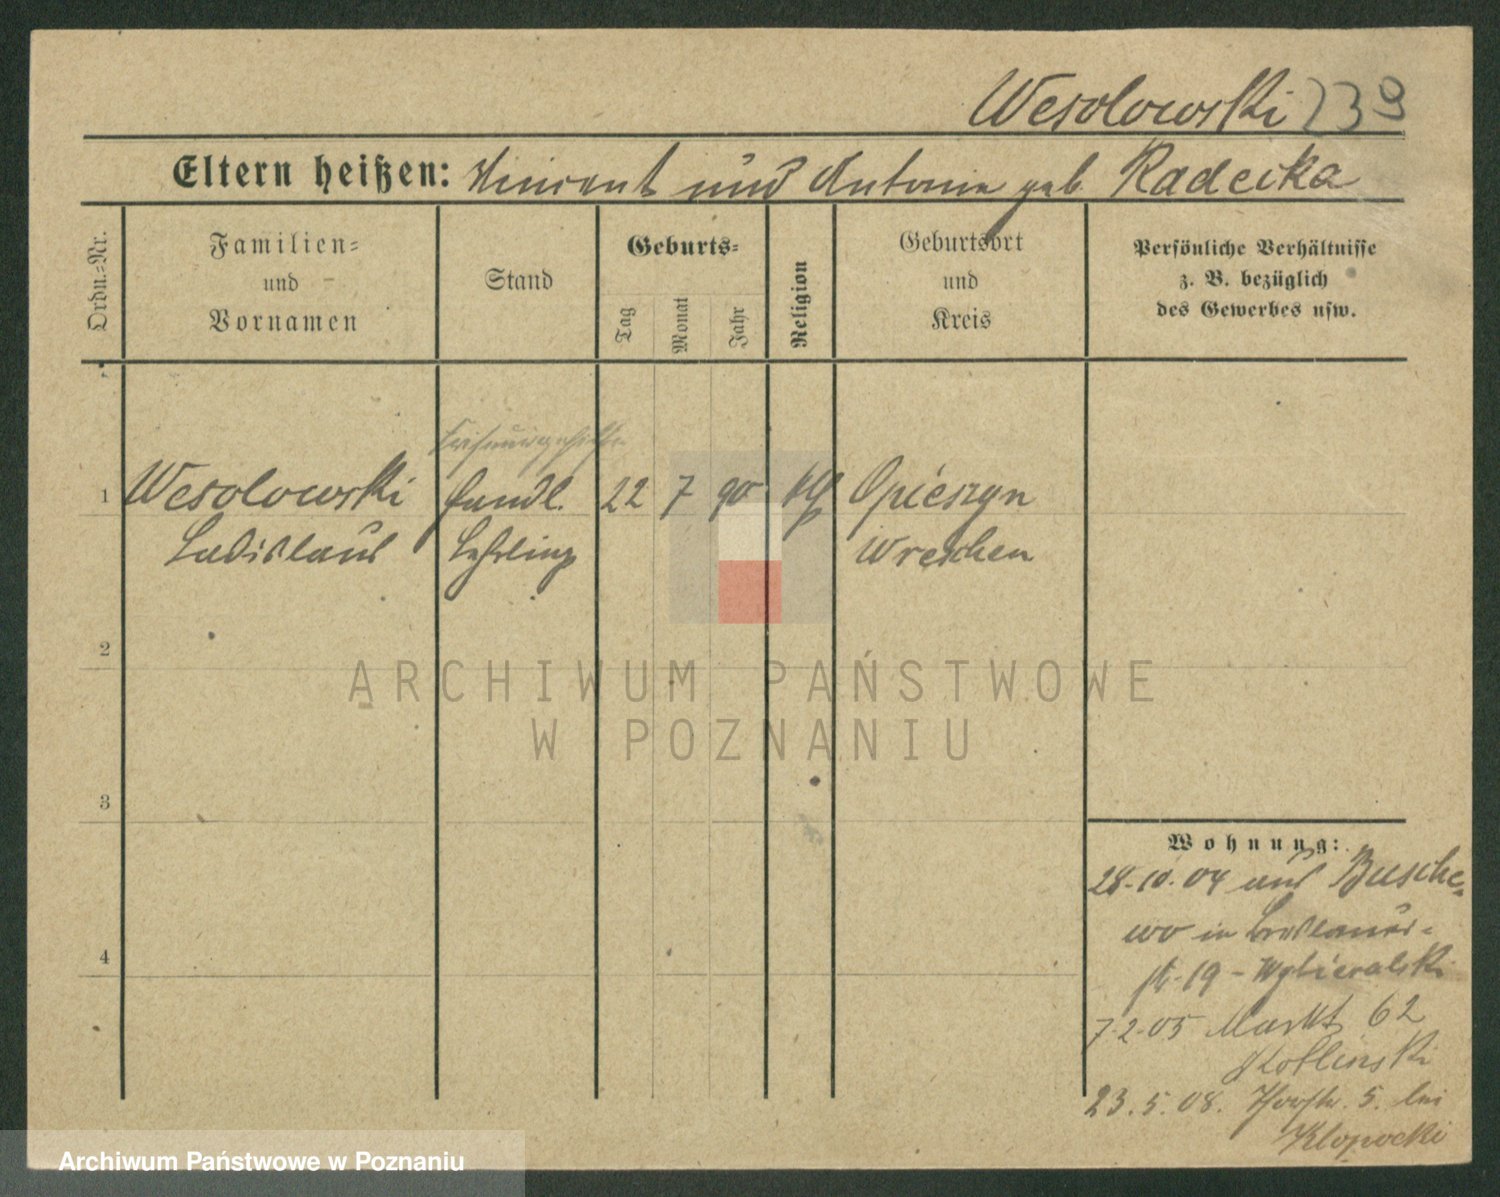 Wesolowski 239
Eltern heißen: Vincent und Antonie geb. Radecka
Ordn.-Nr.
Familien-
und
Vornamen
Stand
Geburts-
Tag
Monat
Jahr
Religion
Geburtsort
und
Kreis
Persönliche Verhältnisse
z. B. bezüglich
des Gewerbes usw.
1
Wesolowski
Ladislaus
Handl.
Lehrling
22 7 90
Opieszyn
Wreschen
2
3
4
Wohnung:
28.10.04 aus Busche-
wo in Breslauer-
str. 19 - Wybieralski
7.2.05 Markt 62
Kotlinski
23.5.08. 5. bei
Klopocki
ARCHIWUM PAŃSTWOWE
W POZNANIU
Archiwum Państwowe w Poznaniu